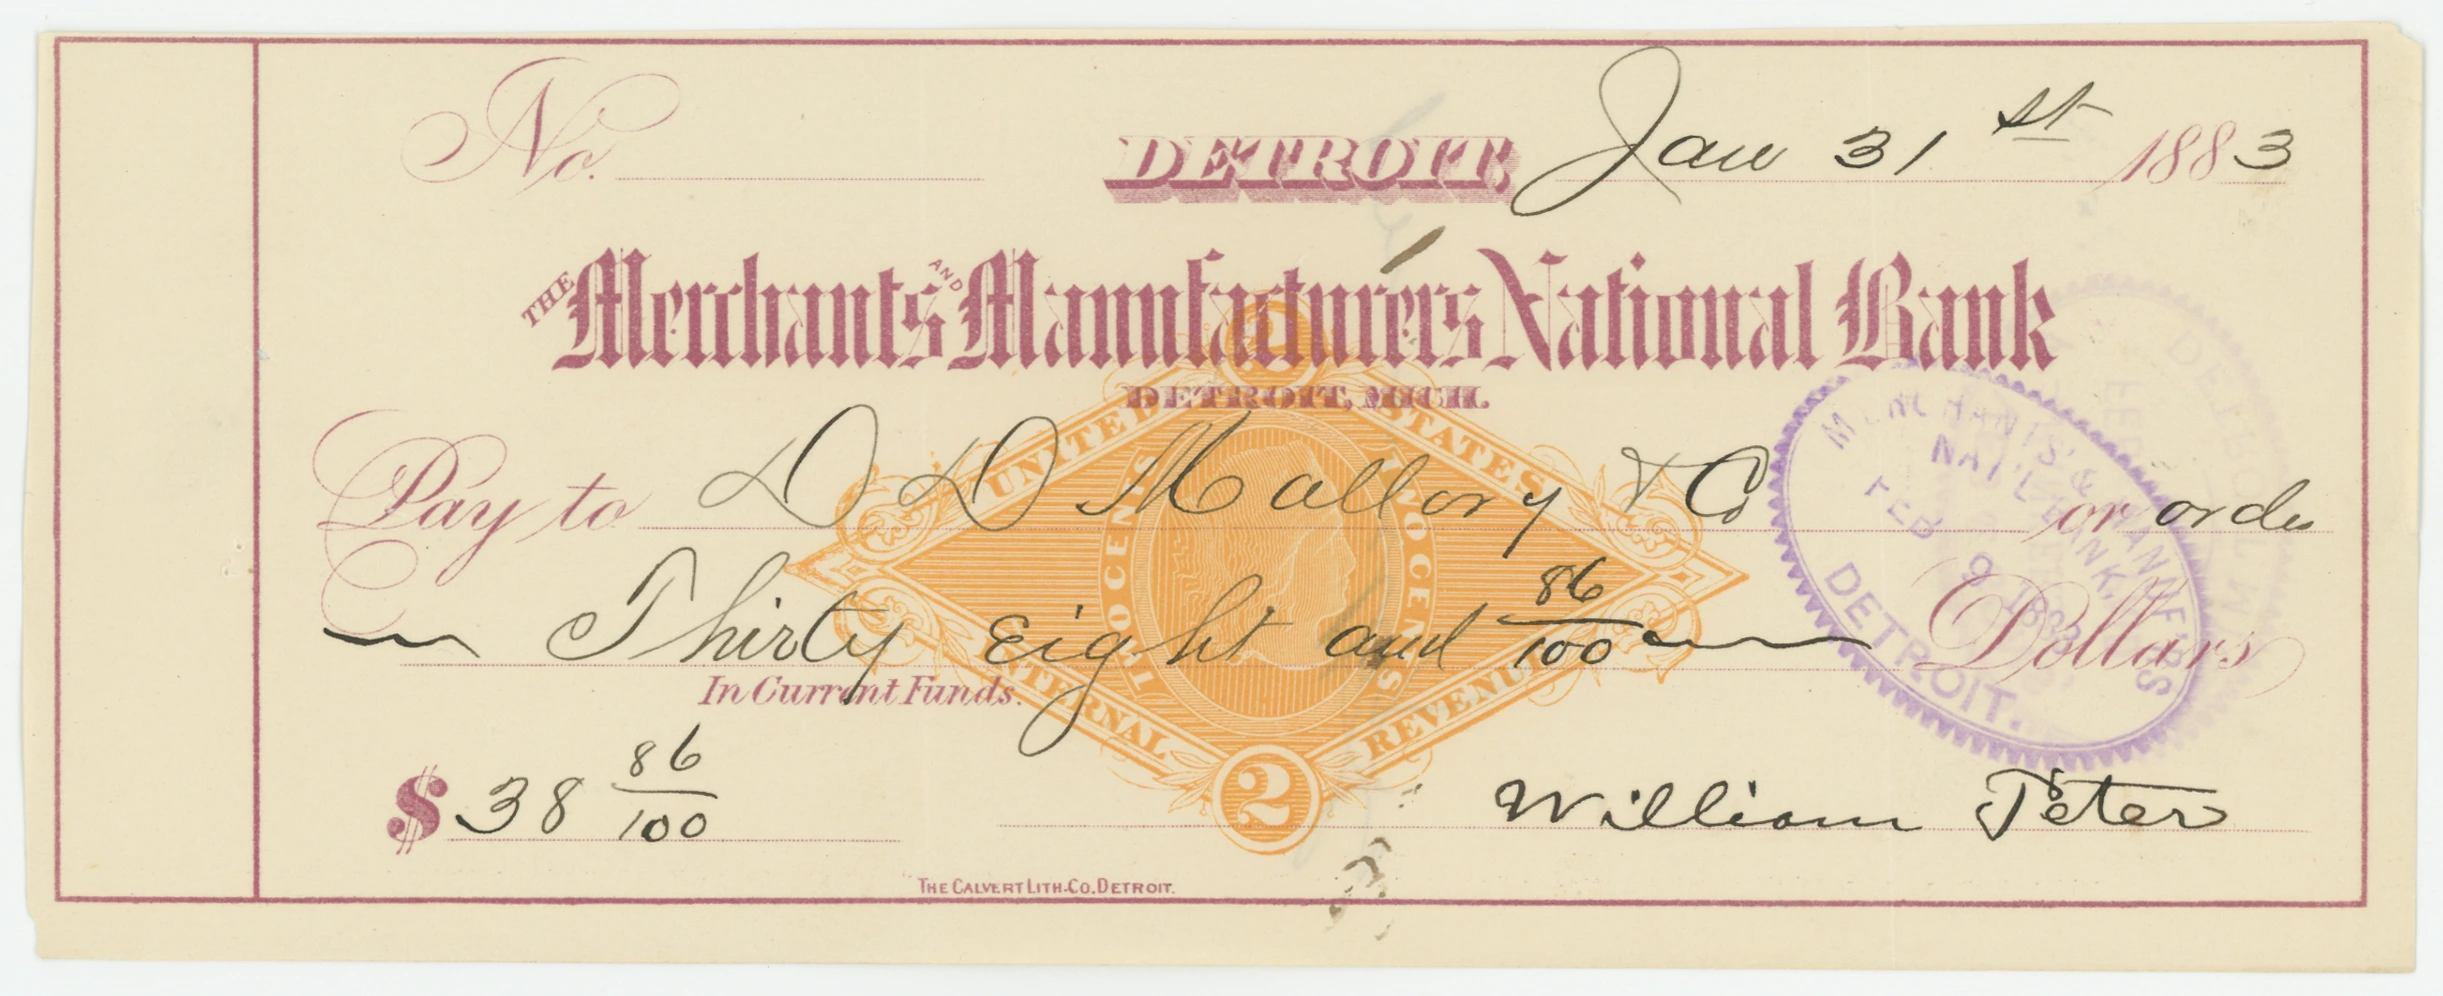 No.
DETROIT, Jan 31st 1883
THE Merchants AND Manufacturers National Bank
DETROIT, MICH.
Pay to D D Mallory & Co or order
Thirty Eight and 86/100 Dollars
In Current Funds.
$ 38 86/100
William Peter
THE CALVERT LITH. CO. DETROIT.
2
UNITED STATES
TWO CENTS TWO CENTS
INTERNAL REVENUE
2
MERCHANTS' & MANUF'RS
NAT'L BANK.
FEB 9 1883
DETROIT.